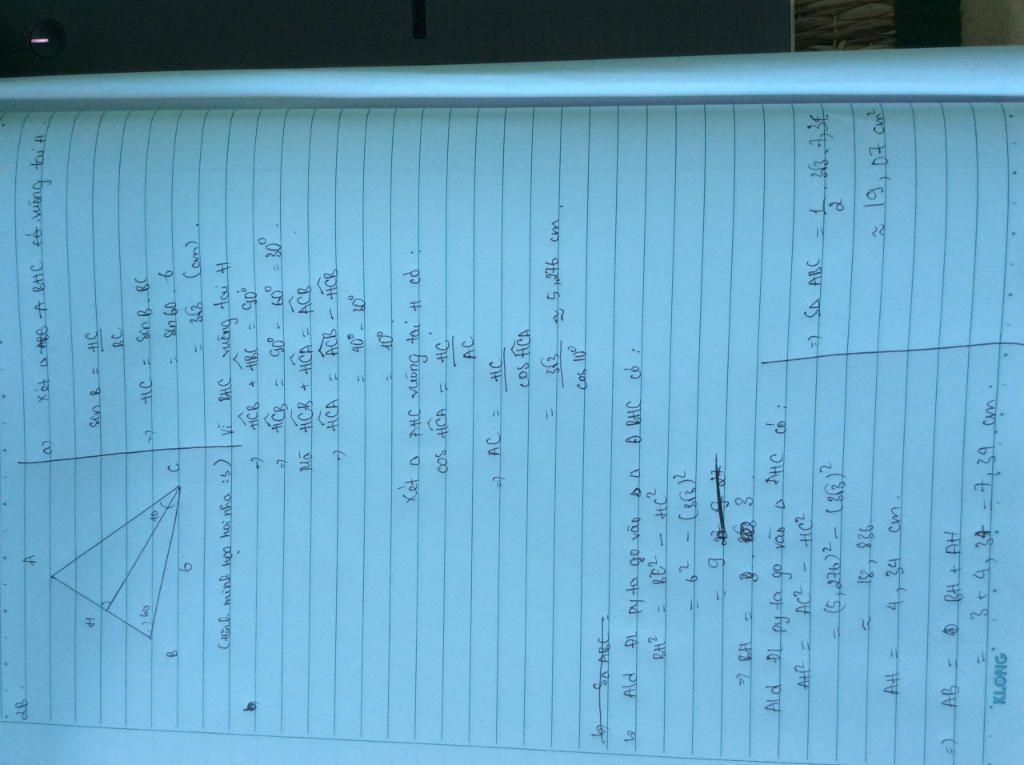 2B.
A
H
B
C
60
40
6
(Hình minh họa hơi nha :3)
a) Xét Δ BHC vuông tại H.
sin B = HC / BC
=> HC = sin B . BC
= sin 60 . 6
= 3√3 (cm).
Vì BHC vuông tại H
=> HCB + HBC = 90⁰
=> HCB = 90⁰ - 60⁰ = 30⁰
Mà HCB + HCA = ACB
=> HCA = ACB - HCB
= 40⁰ - 30⁰
= 10⁰
Xét Δ AHC vuông tại H có :
cos HCA = HC / AC
=> AC = HC / cos HCA
= 3√3 / cos 10⁰ ≈ 5,276 cm.
b, SΔABC =
b, Ald ĐL pytago vào Δ BHC có :
BH² = BC² - HC²
= 6² - (3√3)²
= 9
=> BH = 3
Ald ĐL pytago vào Δ AHC có :
AH² = AC² - HC²
= (5,276)² - (3√3)²
≈ 18,836
AH = 4,34 cm.
=> AB = BH + AH
= 3 + 4,34 = 7,34 cm.
=> SΔ ABC = 1/2 . 3√3 . 7,34
≈ 19,07 cm²
KLONG